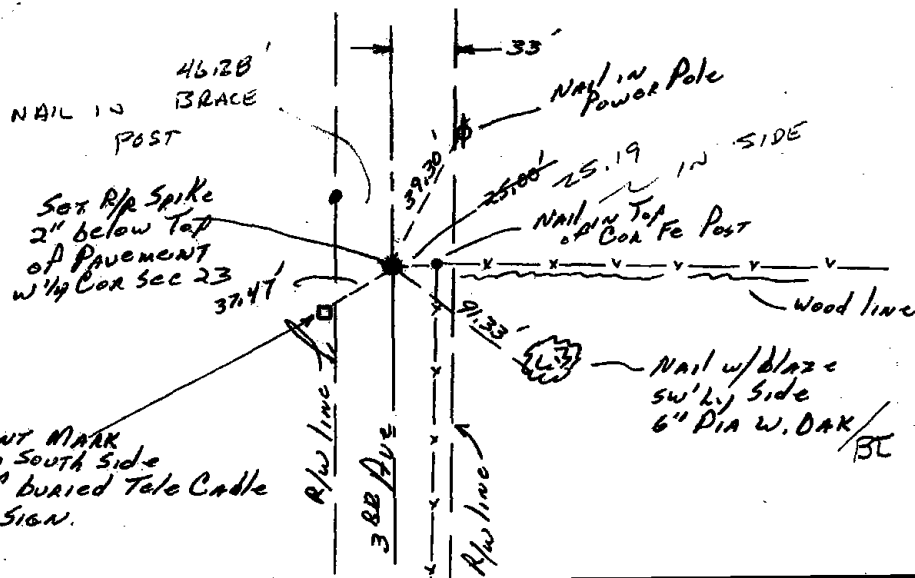 46.28'
NAIL IN BRACE
POST
33'
NAIL IN
POWER POLE
39.30'
25.00' 25.19
IN SIDE
Set R/R Spike
2" below Top
of Pavement
W 1/4 Cor Sec 23
NAIL IN TOP
of Cor Fe Post
37.47'
91.33'
Wood line
NAIL w/blaze
SW'Ly Side
6" DIA W. OAK
BT
NT MARK
South Side
buried Tele Cable
SIGN.
R/W line
3 RD Ave
R/W line